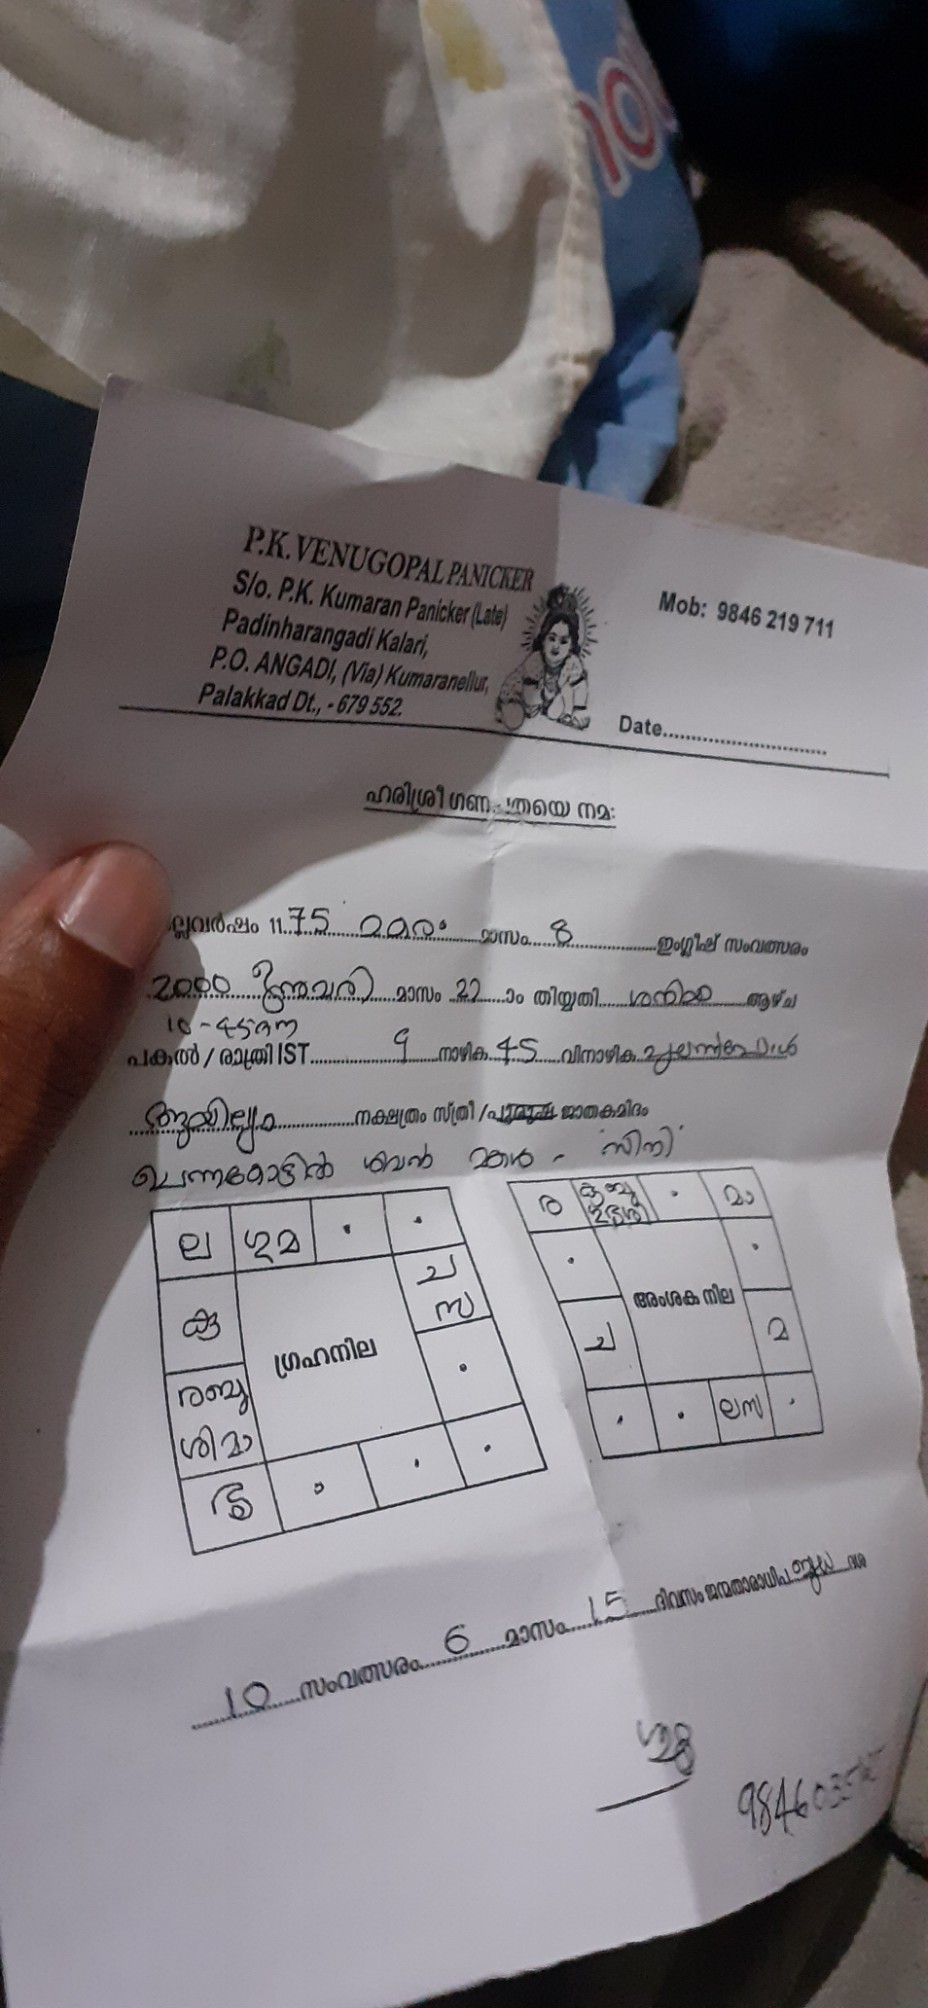 P.K. VENUGOPAL PANICKER
S/o. P.K. Kumaran Panicker (Late)
Padinharangadi Kalari,
P.O. ANGADI, (Via) Kumaranellur,
Palakkad Dt., - 679 552.
Mob: 9846 219 711
Date
ഹരിശ്രീ ഗണ
നമഃ
ല്ലവർഷം 1175 മകരം മാസം 8 ഇംഗ്ലീഷ് സംവത്സരം
2000 ജനുവരി മാസം 22 ാം തിയ്യതി ശനി ആഴ്ച
10-45
പകൽ / രാത്രി IST 9 നാഴിക 45 വിനാഴിക
ആയില്ല്യം നക്ഷത്രം സ്ത്രീ / പുരുഷ ജാതകമിദം
മകൾ - സിനി
ല ഗു മ
കു
ച
സ
ഗ്രഹനില
ര ബു
ശി മാ
ര
മാ
അംശക നില
ച
മ
ല സ
10 സംവത്സരം 6 മാസം 15 ദിവസം ജന്മതാരാധിപ ബുധ ദശ
ശുഭം